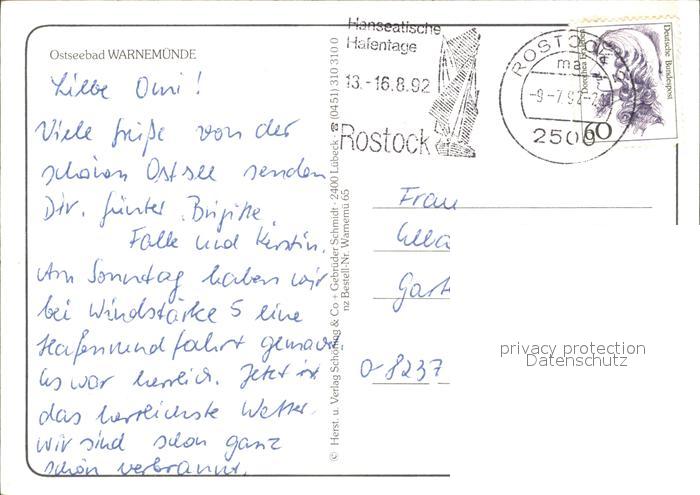 Ostseebad WARNEMÜNDE
Liebe Omi!
Viele Grüße von der
schönen Ostsee senden
Dir Günter, Brigitte,
Falk und Kerstin.
Am Sonntag haben wir
bei Windstärke 5 eine
Hafenrundfahrt gemacht.
Es war herrlich. Jetzt ist
das herrlichste Wetter.
Wir sind schon ganz
schön verbrannt.
© Herst. u. Verlag Schöning & Co + Gebrüder Schmidt · 2400 Lübeck ☎ (0451) 310 310 0
nz Bestell-Nr. Warnemü 65
Hanseatische
Hafentage
13.-16.8.92
Rostock
ROSTOCK
-9.-7.92
2500
Deutsche Bundespost
60
Frau
Ella
Gart
O-8237
privacy protection
Datenschutz